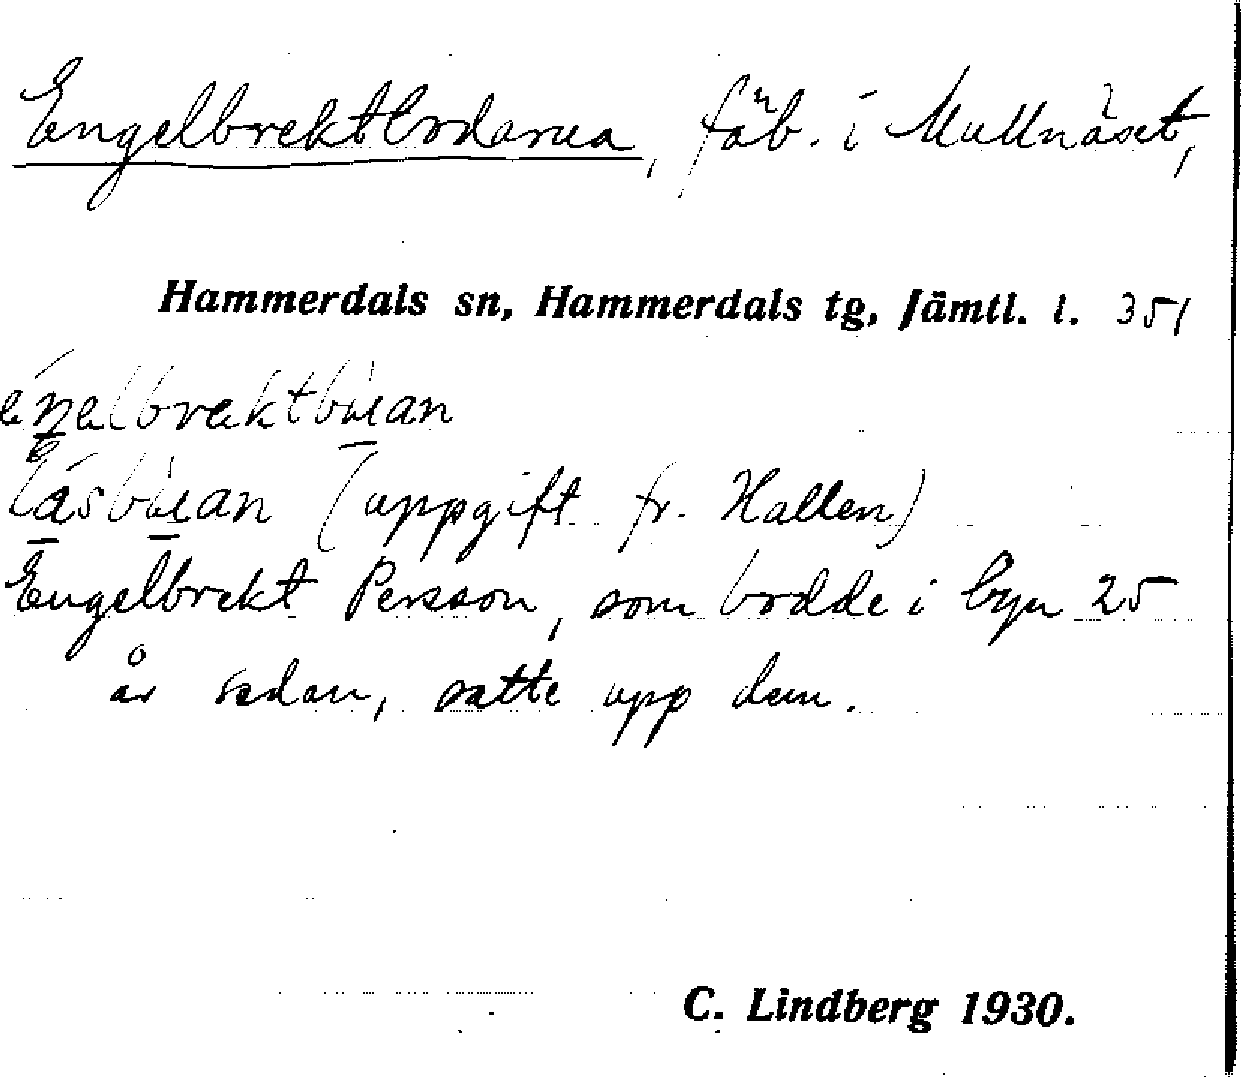 Engelbrektbodarna, fäb. i Mullnäset,
Hammerdals sn, Hammerdals tg, Jämtl. l. 351
(uppgift fr. Hallen)
Engelbrekt Persson, som bodde i byn 25
år sedan, satte upp dem.
C. Lindberg 1930.